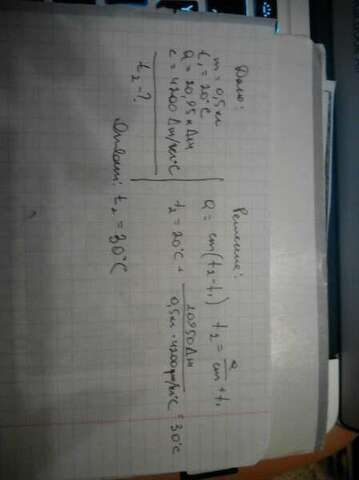 Дано:
m = 0,5 кг
t₁ = 20°C
Q = 20,95 кДж
c = 4200 Дж/кг°C
t₂ - ?
Решение:
Q = cm(t₂-t₁) t₂ = Q/cm + t₁
t₂ = 20°C + 20950Дж/0,5кг·4200Дж/кг°C = 30°C
Ответ: t₂ = 30°C